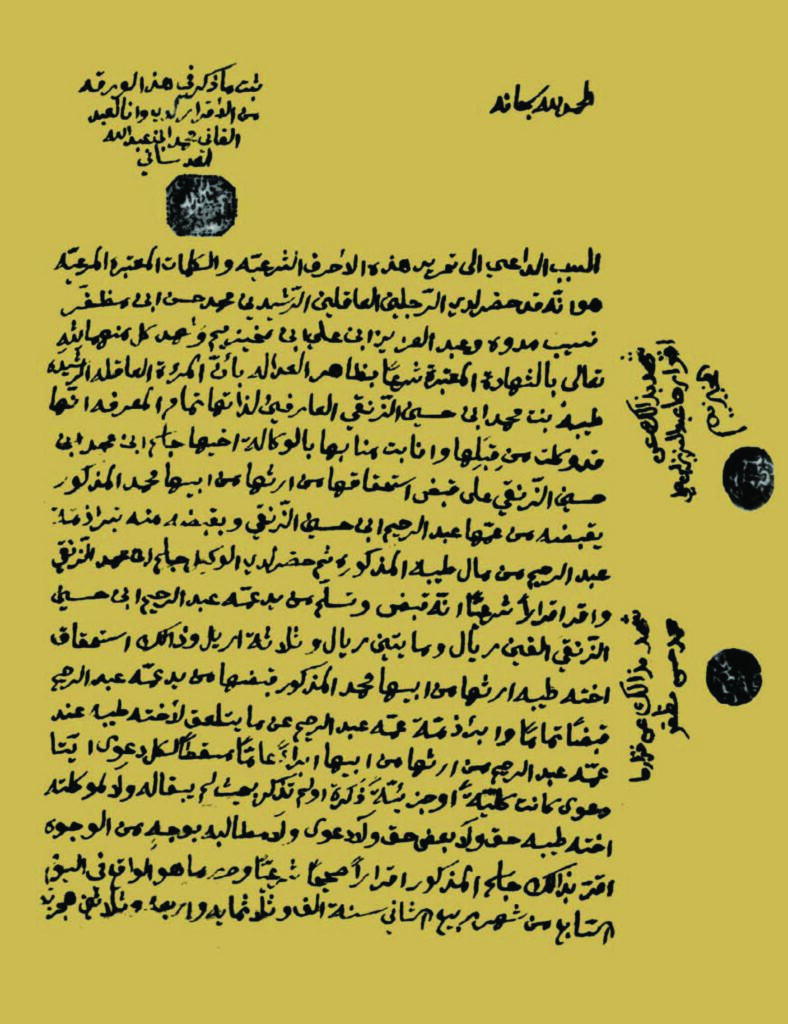 الحمد لله سبحانه
ثبت ما ذكر في هذه الورقه
من الاقرار لدي وانا العبد
الفاني محمد ابن عبدالله
العدساني
السبب الداعي الى تحرير هذه الأحرف الشرعيّه والكلمات المعتبره المرعيّه
هو انّه قد حضر لدي الرّجلين العاقلين الرّشيدين محمد حسن ابن مظفّر
نسيب مدوه وعبد العزيز ابن علي ابن وشهد كل منهما لله
تعالى بالشهادة المعتبرة شرعًا بظاهر العداله بأنّ المرئة العاقله الرّشيده
طيبة بنت محمد ابن حسين التّرنقي العارفين لذاتها تمام المعرفه انّها
قد وكلت من قِبَلِها وانابت منابها بالوكالة اخيها جاسم ابن محمد ابن
حسين التّرنقي على قبض استحقاقها من ارثها من ابيها محمد المذكور
يقبضه من عمّها عبد الرحيم ابن حسين التّرنقي وبقبضه منه تبرا ذمّة
عبد الرحيم من مال طيبه المذكوره ثم حضر لدي الوكيل جاسم ابن محمد التّرنقي
واقر اقرارًا شرعيًّا انّه قبض وتسلّم من يد عمّه عبد الرحيم ابن حسين
التّرنقي الفين ريال ومايتين ريال وثلاثة اريل وذالك استحقاق
اخته طيبه ارثها من ابيها محمد المذكور قبضها من يد عمّه عبد الرحيم
قبضًا تمامًا وابرأ ذمّة عمّه عبد الرحيم عن ما يتعلق لأخته طيبه عند
عمّه عبد الرحيم من ارثها من ابيها ابراءً عامًّا مسقطًا لكل دعوى ايّتا
دعوى كانت كليّةً أو جزئيّةً ذُكرة اولم تذكر بحيث لم يبقا له ولا لموكلته
اخته طيبه حق ولا بعض حق ولا دعوى ولا مطالبه بوجهٍ من الوجوه
اقر بذالك جاسم المذكور اقرارًا صحيحًا شرعيًّا وحرر ما هو الواقع في اليوم
السّابع من شهر ربيع الثاني سنة الف وثلاثمايه واربعة وثلاثين هجريّه
شهد بذالك عن
اقرارها عبدالعزيز بن علي
شهد بذالك عن اقرارها
محمد حسن مظفر